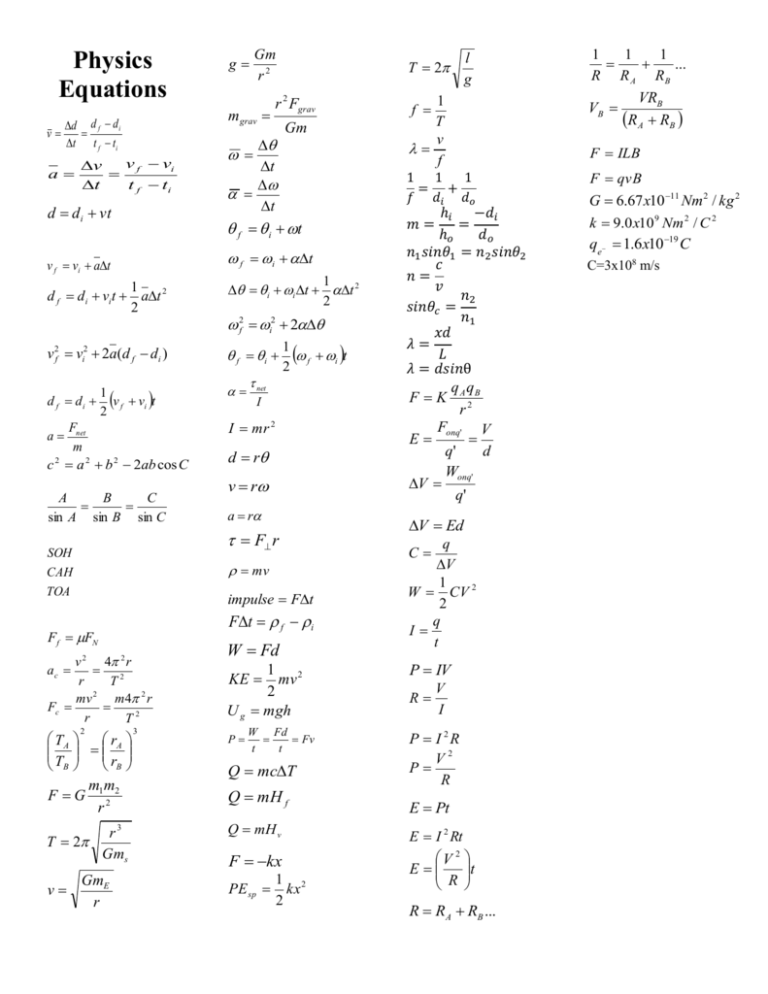 Physics
Equations
v̅ = Δd/Δt = (d_f − d_i)/(t_f − t_i)
a̅ = Δv/Δt = (v_f − v_i)/(t_f − t_i)
d = d_i + vt
v_f = v_i + a̅Δt
d_f = d_i + v_it + 1/2 a̅Δt²
v_f² = v_i² + 2a̅(d_f − d_i)
d_f = d_i + 1/2 (v_f + v_i)t
a = F_net/m
c² = a² + b² − 2ab cos C
A/sin A = B/sin B = C/sin C
SOH
CAH
TOA
F_f = μF_N
a_c = v²/r = 4π²r/T²
F_c = mv²/r = m4π²r/T²
(T_A/T_B)² = (r_A/r_B)³
F = G m₁m₂/r²
T = 2π √(r³/Gm_s)
v = √(Gm_E/r)
g = Gm/r²
m_grav = r²F_grav/Gm
ω̅ = Δθ/Δt
α̅ = Δω/Δt
θ_f = θ_i + ωt
ω_f = ω_i + αΔt
Δθ = θ_i + ω_iΔt + 1/2 αΔt²
ω_f² = ω_i² + 2αΔθ
θ_f = θ_i + 1/2 (ω_f + ω_i)t
α = τ_net/I
I = mr²
d = rθ
v = rω
a = rα
τ = F_⊥r
ρ = mv
impulse = FΔt
FΔt = ρ_f − ρ_i
W = Fd
KE = 1/2 mv²
U_g = mgh
P = W/t = Fd/t = Fv
Q = mcΔT
Q = mH_f
Q = mH_v
F = −kx
PE_sp = 1/2 kx²
T = 2π √(l/g)
f = 1/T
λ = v/f
1/f = 1/d_i + 1/d_o
m = h_i/h_o = −d_i/d_o
n₁sinθ₁ = n₂sinθ₂
n = c/v
sinθ_c = n₂/n₁
λ = xd/L
λ = dsinθ
F = K q_Aq_B/r²
E = F_onq'/q' = V/d
ΔV = W_onq'/q'
ΔV = Ed
C = q/ΔV
W = 1/2 CV²
I = q/t
P = IV
R = V/I
P = I²R
P = V²/R
E = Pt
E = I²Rt
E = (V²/R)t
R = R_A + R_B...
1/R = 1/R_A + 1/R_B ...
V_B = VR_B/(R_A + R_B)
F = ILB
F = qvB
G = 6.67x10⁻¹¹ Nm² / kg²
k = 9.0x10⁹ Nm² / C²
q_e⁻ = 1.6x10⁻¹⁹ C
C=3x10⁸ m/s